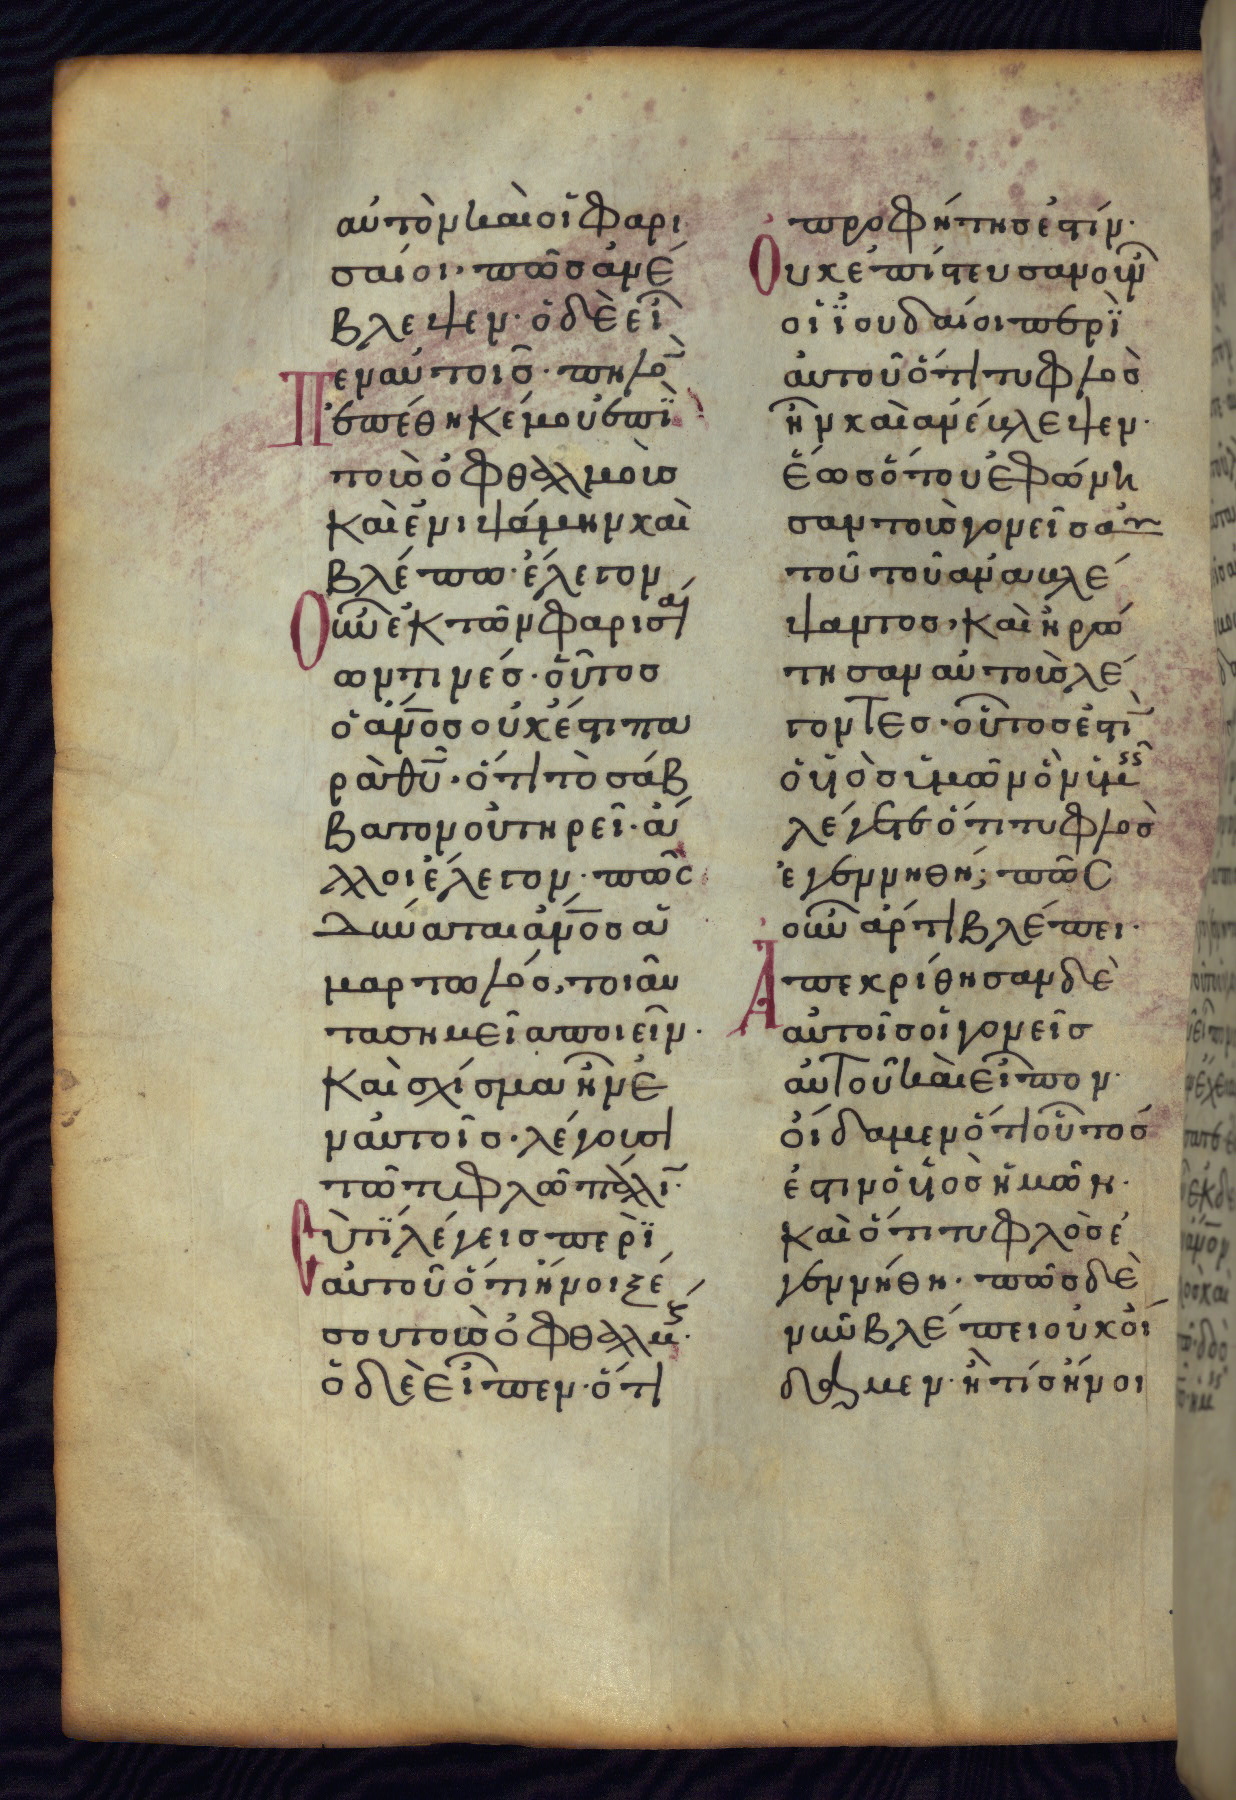 αὐτὸν καὶ οἱ Φαρι
σαίοι· πῶς ἀνέ
βλεψεν· ὁ δὲ εἶ
πεν αὐτοῖς· πηλὸ̄
ἐπέθηκέ μου ἐπὶ
τοὺς ὀφθαλμοὺς
καὶ ἐνιψάμην καὶ
βλέπω· ἔλεγον
Οὖν ἐκ τῶν Φαρισαί
ων τινές· οὗτος
ὁ ἄν̅ος οὐκ ἔστι πα
ρὰ θῡ· ὅτι τὸ σάβ
βατον οὐ τηρεῖ· ἄ
λλοι ἔλεγον· πῶς
δύναται ἄν̅ος ἁ
μαρτωλός, τοιαῦ
τα σημεῖα ποιεῖν·
καὶ σχίσμα ἦν ἐ
ν αὐτοῖς· λέγουσι
τῶ τυφλῶ πάλῑ·
Σὺ τί λέγεις περὶ
αὐτοῦ ὅτι ἤνοιξέ
σου τοὺς ὀφθαλμ·
ὁ δὲ εἶπεν· ὅτι
προφήτης ἐστίν·
Οὐκ ἐπίστευσαν οὖν
οἱ ἰουδαίοι περὶ
αὐτοῦ ὅτι τυφλὸς
ἦν καὶ ἀνέβλεψεν·
ἕως ὅτου ἐφώνη
σαν τοὺς γονεῖς αὐ
τοῦ τοῦ ἀναβλέ
ψαντος, καὶ ἠρώ
τησαν αὐτοὺς λέ
γοντες· οὗτος ἐστῑ
ὁ υἱὸς ὑμῶν ὃν ὑμεῖς
λέγετε ὅτι τυφλὸς
ἐγεννήθη; πῶς
οὖν ἄρτι βλέπει·
Ἀπεκρίθησαν δὲ
αὐτοῖς οἱ γονεῖς
αὐτοῦ καὶ εἶπον·
οἴδαμεν ὅτι οὗτός
ἐστιν ὁ υἱὸς ἡμῶν·
καὶ ὅτι τυφλὸς ἐ
γεννήθη· πῶς δὲ
νῦν βλέπει οὐκ οἴ
δαμεν· ἢ τίς ἤνοι